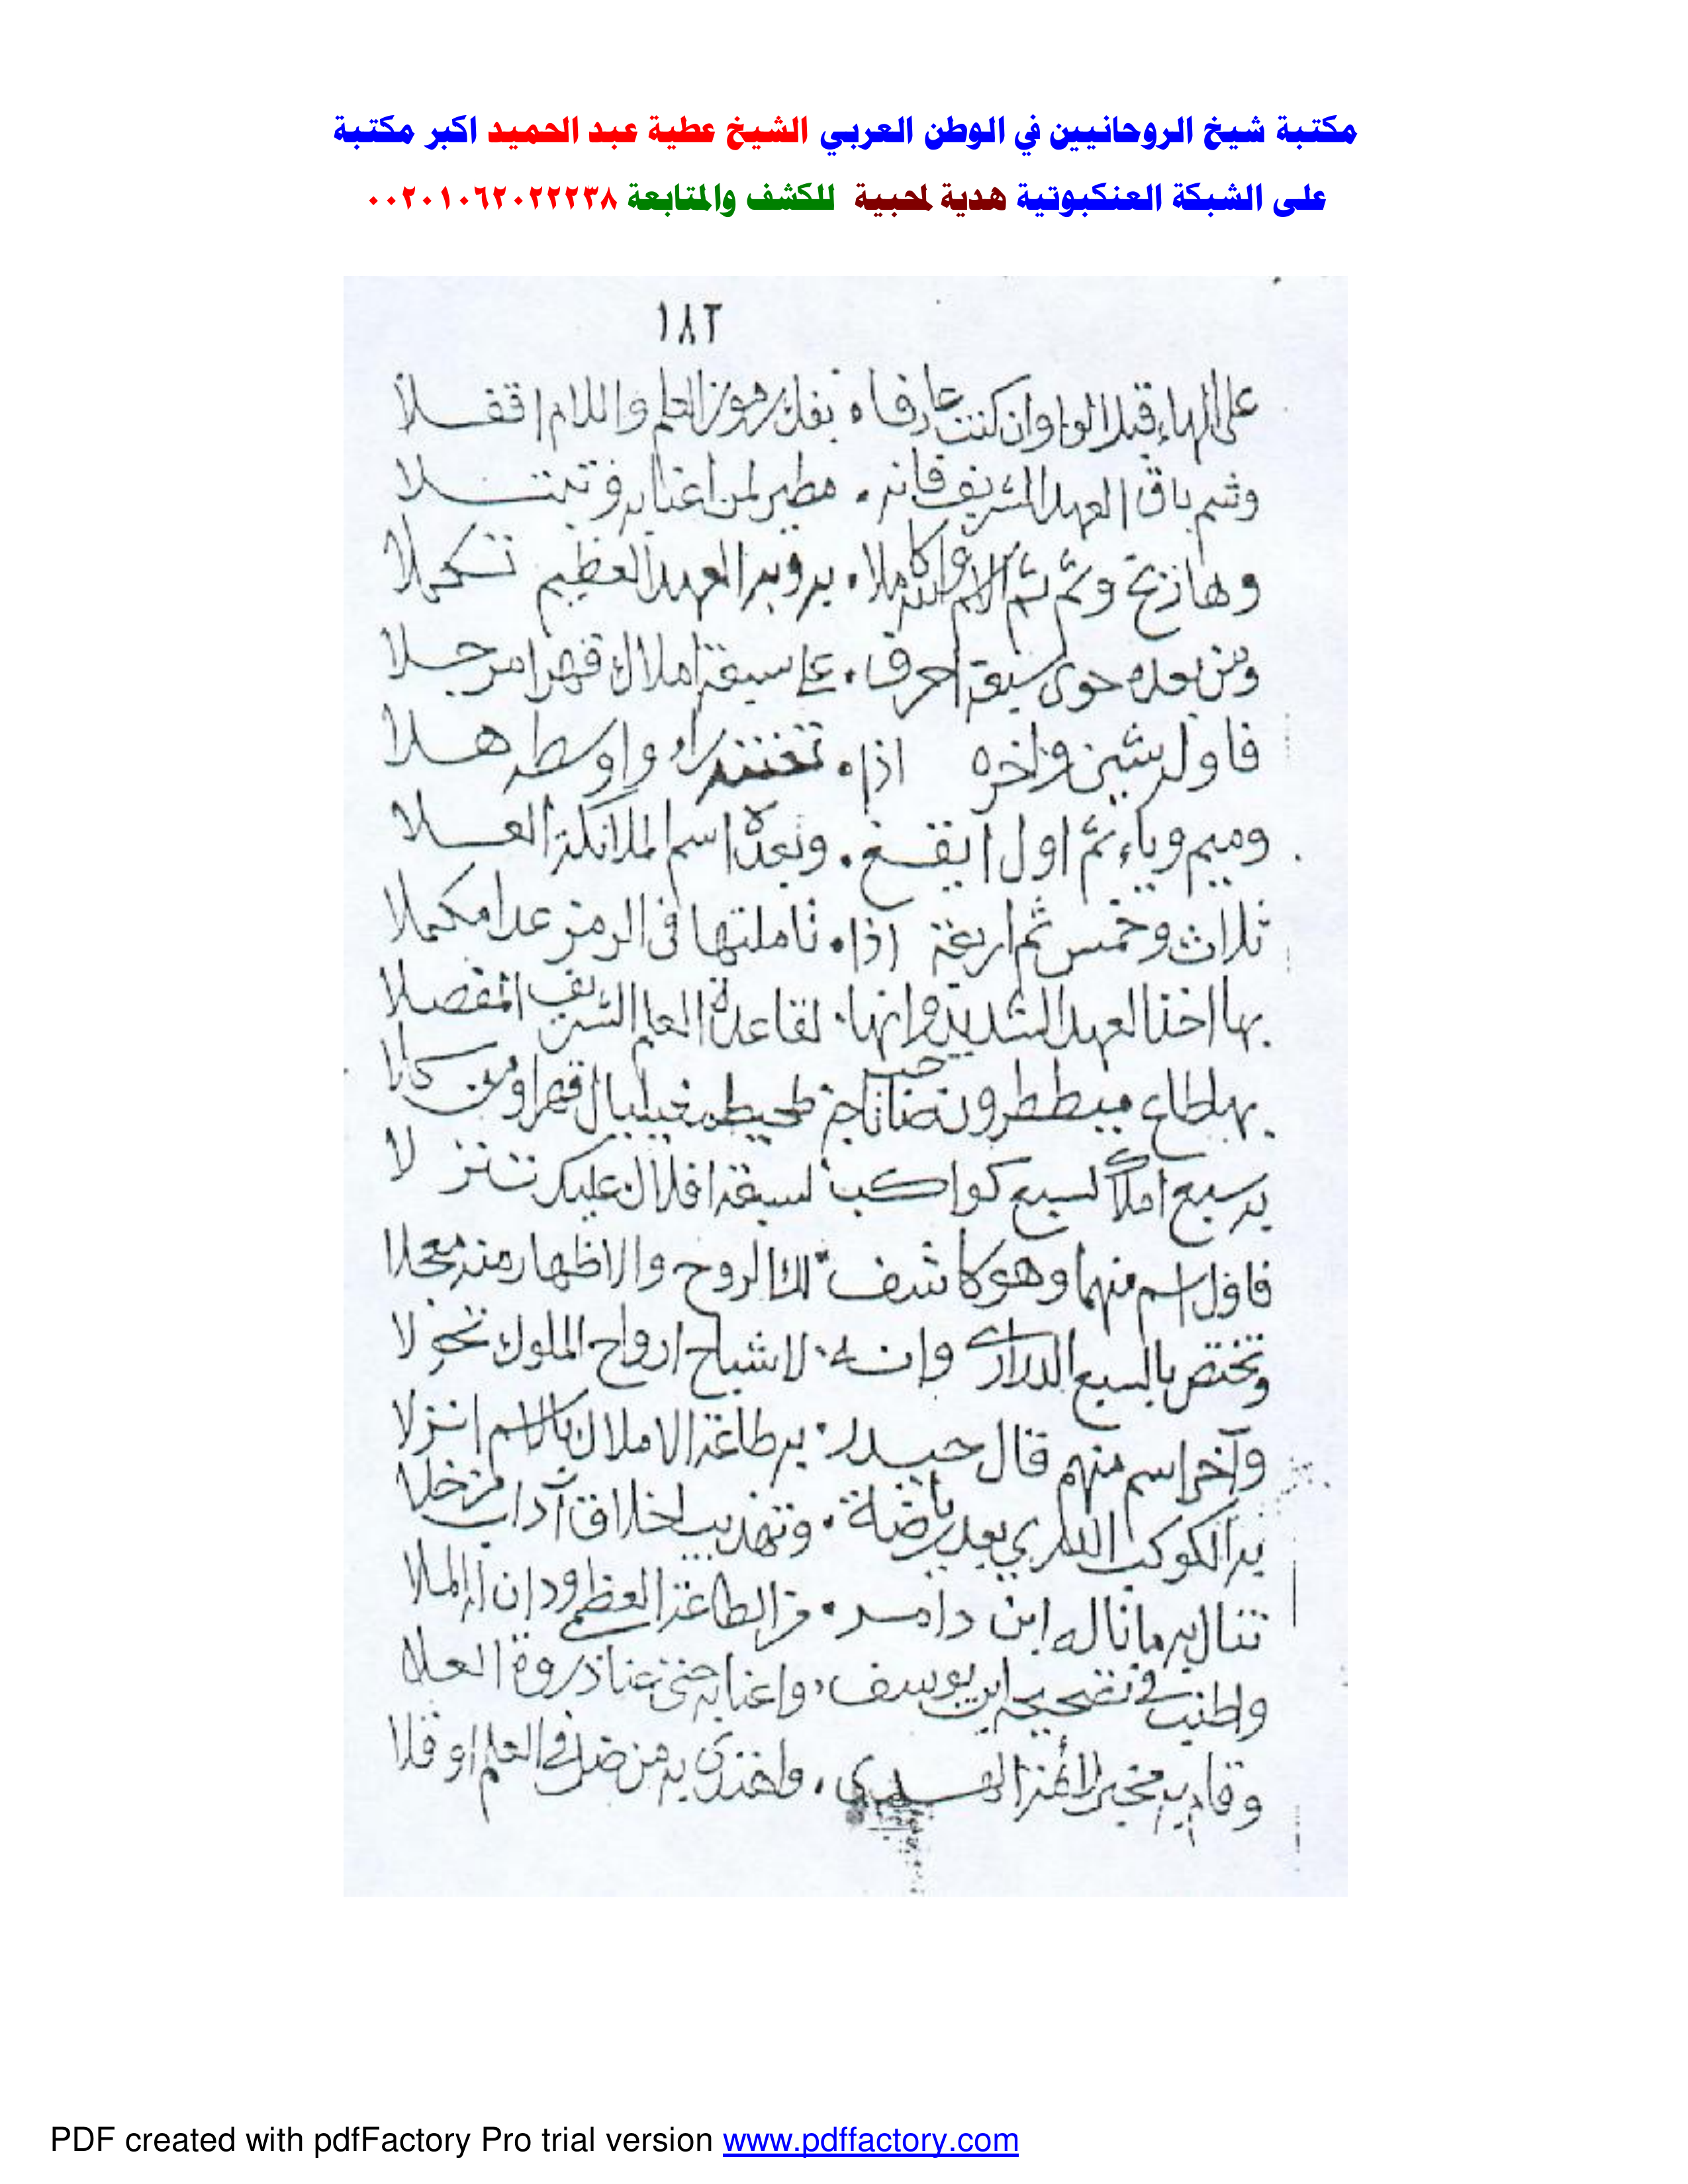 مكتبة شيخ الروحانيين في الوطن العربي الشيخ عطية عبد الحميد اكبر مكتبة
على الشبكة العنكبوتية هدية لمحبية للكشف والمتابعة ٠٠٢٠١٠٦٢٠٢٢٢٣٨
١٨٢
على الهاء قبل الواو وان كنت عارفا ه بفك رموز العلم واللام اقفلا
وثم باق العهد الشريف فانه . مطير لمن اعتنا به وتبتلا
وها زنخ وثم ثم كاملا . به وبير العهد العظيم تكملا
ومن بعده حوى سبعة احرف . على سبعة املاك قهرا مرجلا
فاوله شين واخره اذا . راء واوسطه هلا
وميم وياء ثم اول ايقغ . وبعدة اسم الملائكة العلا
ثلاث وخمس ثم اربعة اذا . تاملتها في الرمز عدا مكملا
بها اخذ العهد الشديد وانها . لقاعدة العلم الشريف المفصلا
بها طاع ميططرون قهرا ومن
به سبع املاك لسبع كواكب لسبعة افلاك عليك تنزلا
فاول اسم منهما وهو كاشف لك الروح والاظهار منه معجلا
وتختص بالسبع الدراري وانه . لاشباح ارواح الملوك تحولا
وآخر اسم منهم قال حيدر . به طاعة الاملاك بالاسم انزلا
به الكوكب الدري بعد رياضة . وتهذيب اخلاق آداب من خلا
تنال به ما ناله ابن دامر . من الطاعة العظمى ودان له الملا
واطنب في تصحيحه ابن يوسف . واعنا به حتى عنا ذروة العلا
وقا به مخبر الائمة . واهتدى به من ضل في العلم او قلا
PDF created with pdfFactory Pro trial version www.pdffactory.com